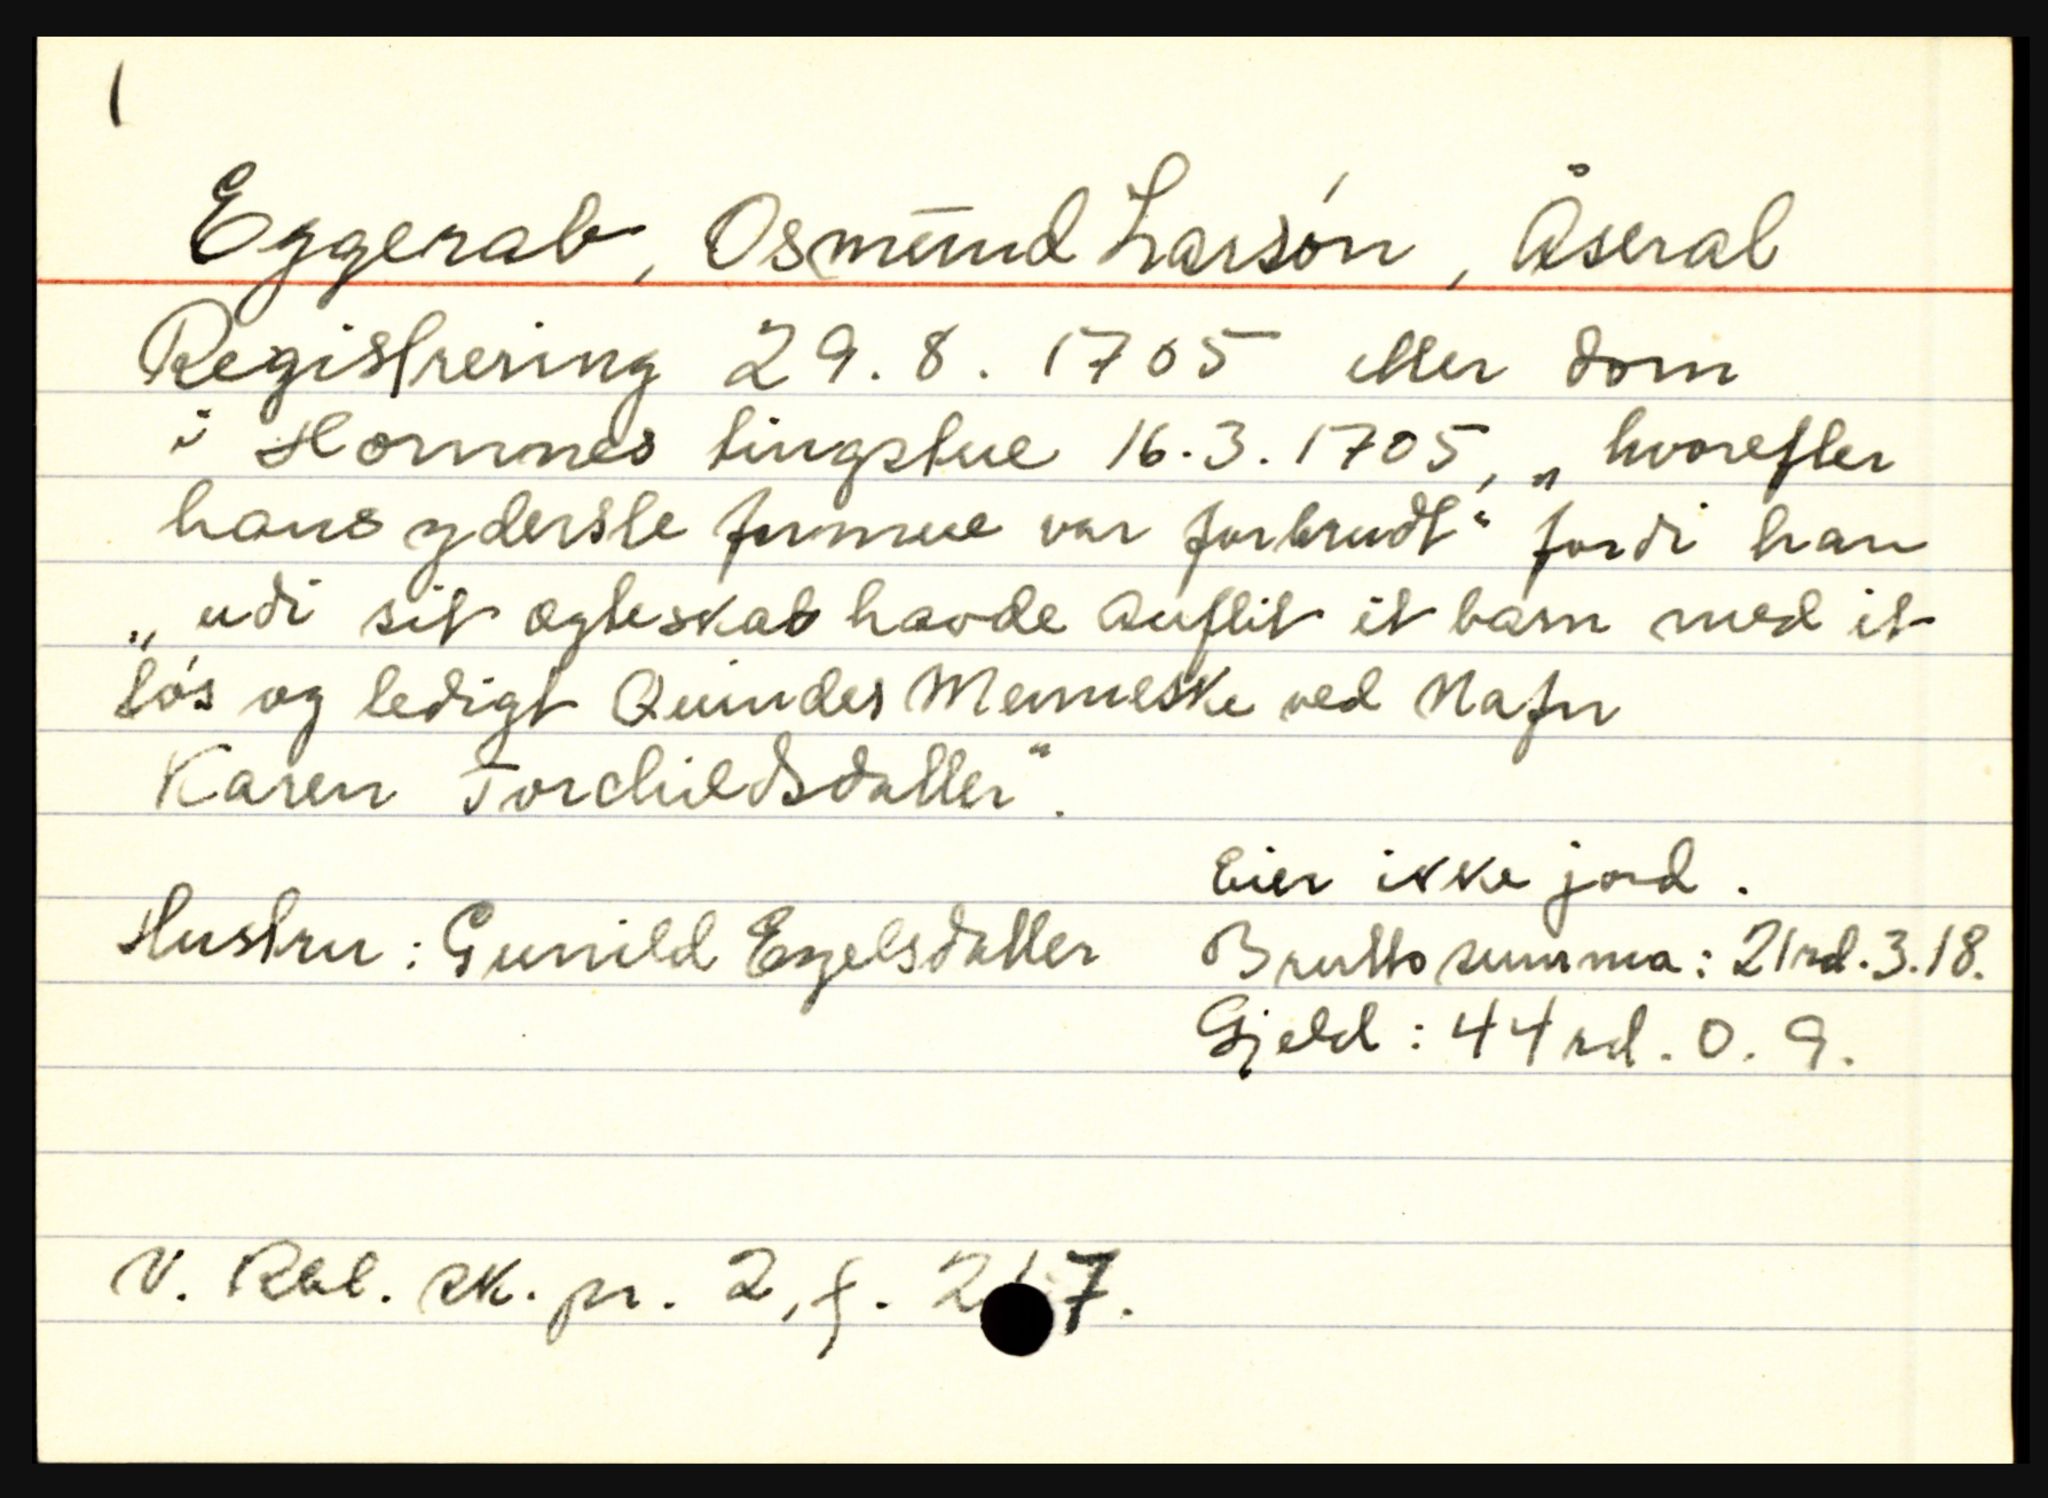 1
Eggerab, Osmund Larsón, Åseral
Registrering 29.8.1705 etter dom
i Homnes tingstue 16.3.1705, „hvorefter
hans yderste formue var forbrudt“ fordi han
„udi sit ægteskab havde auflit it barn med it
lós og ledigt Quindes Menneske ved Nafn
Karen Torchildsdatter“.
Eier ikke jord.
Hustru: Gunild Egelsdatter Brutto summa: 21 rd. 3. 18.
Gjeld: 44 rd. 0. 9.
V. Rbl. sk. pr. 2, f. 7.